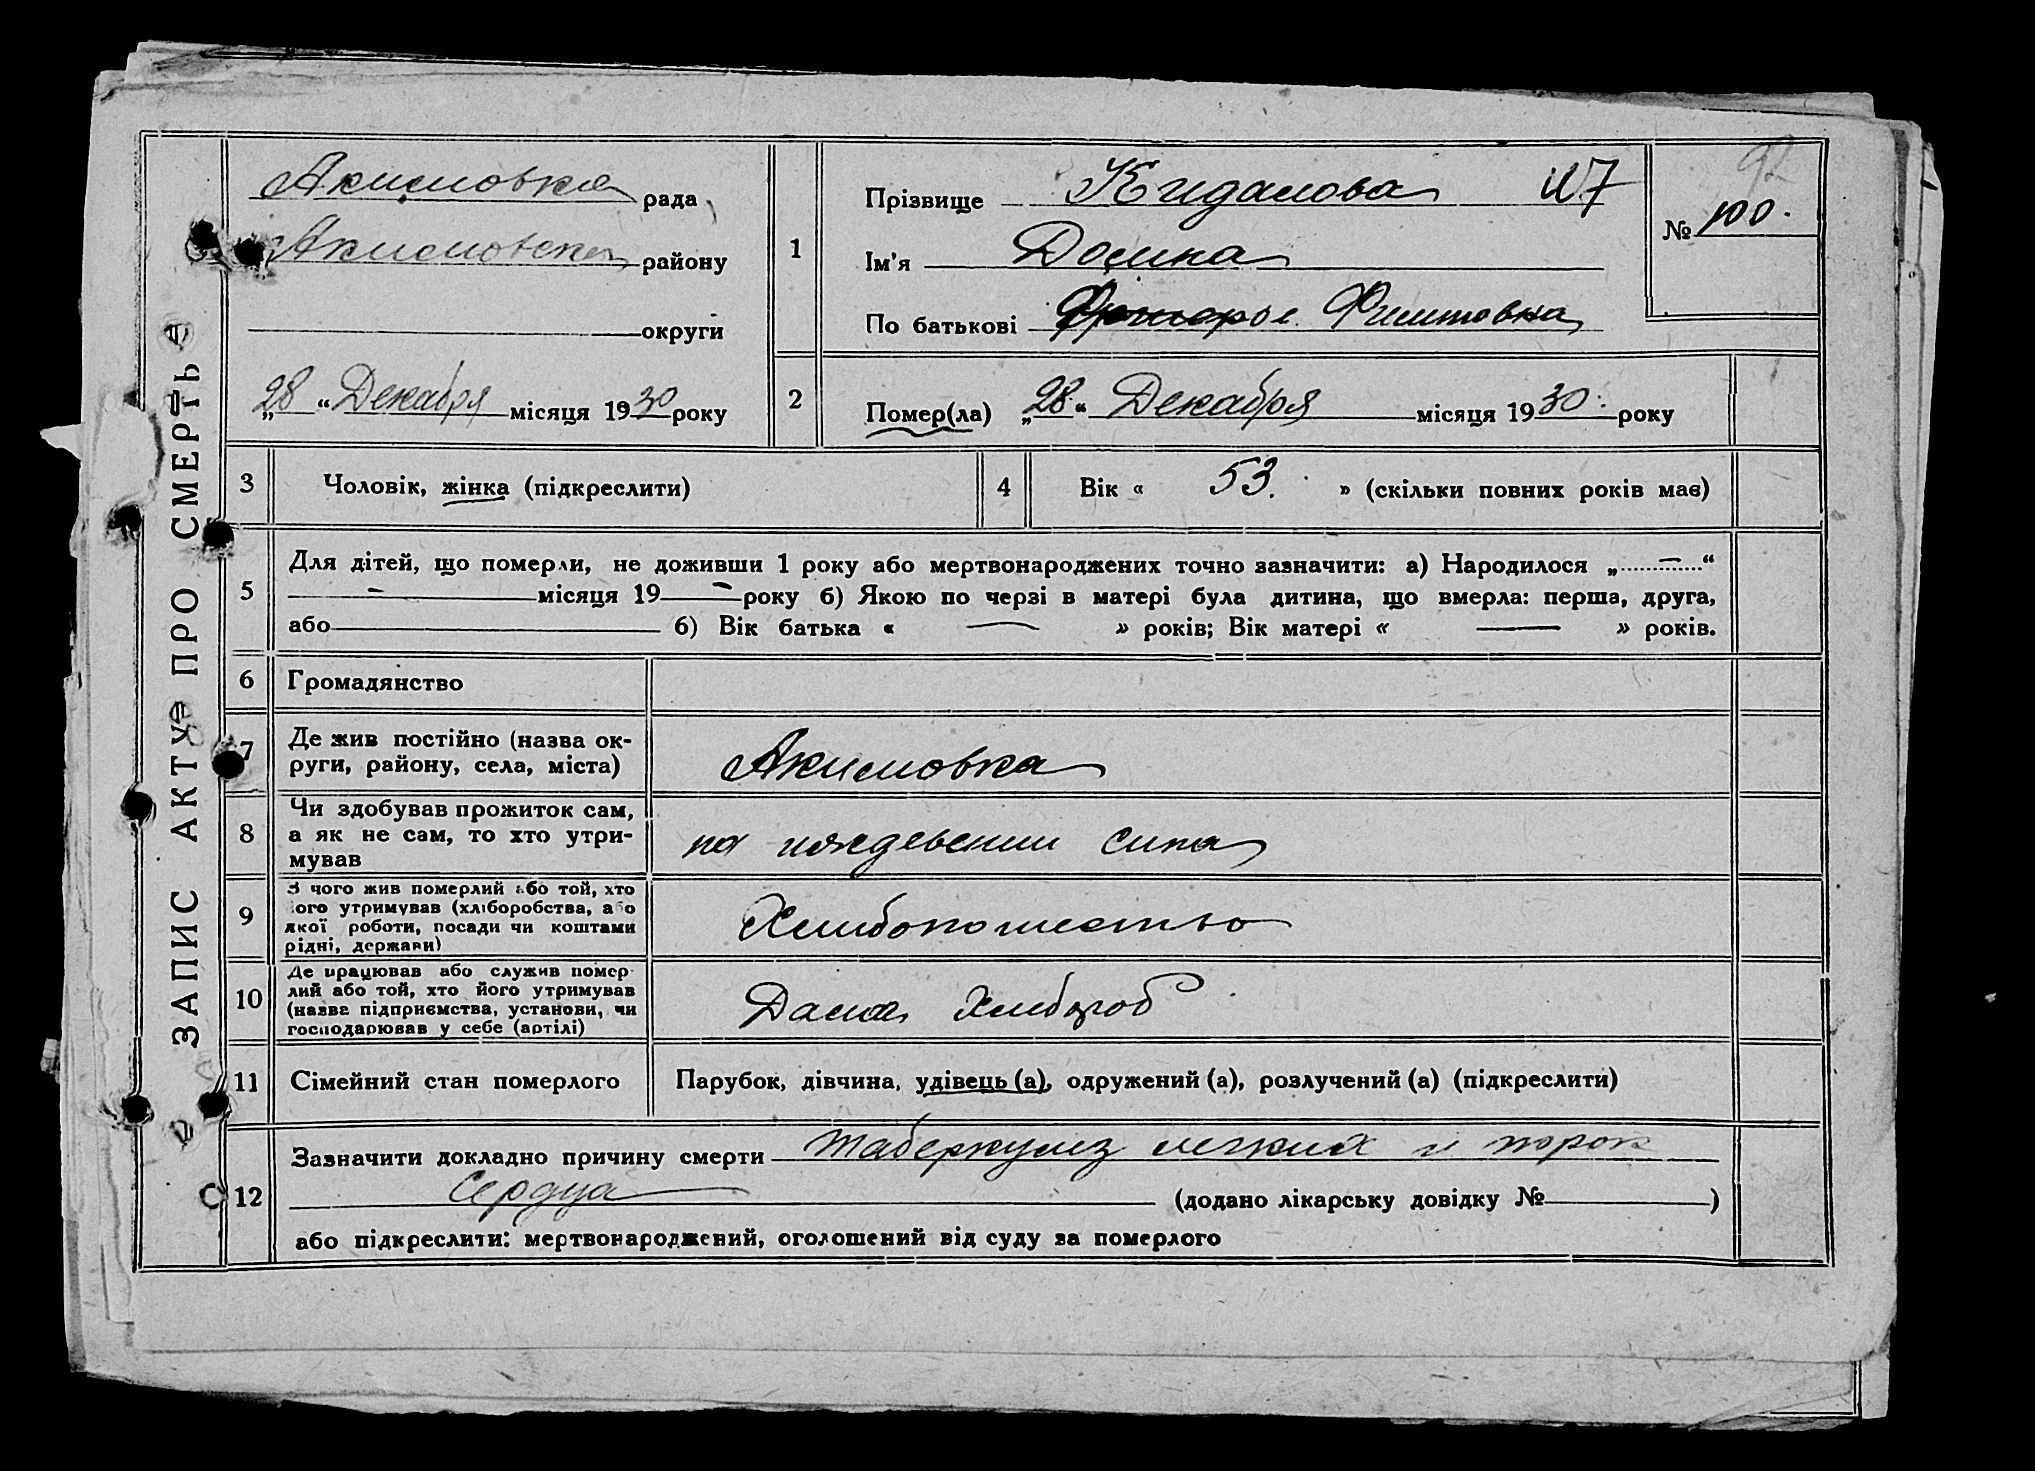 ЗАПИС АКТУ ПРО СМЕРТЬ
Акимовка рада
Акимовска району
округи
„28“ Декабря місяця 1930 року
1
Прізвище Кидалова
Ім'я Домна
По батькові Филитовна
92
№ 100.
2
Помер(ла) „28“ Декабря місяця 1930. року
3 Чоловік, жінка (підкреслити)
4 Вік « 53. » (скільки повних років має)
5 Для дітей, що померли, не доживши 1 року або мертвонароджених точно зазначити: а) Народилося „ — “
— місяця 19 — року б) Якою по черзі в матері була дитина, що вмерла: перша, друга,
або б) Вік батька « — » років; Вік матері « — » років.
6 Громадянство
7 Де жив постійно (назва ок-
руги, району, села, міста)
Акимовка
8 Чи здобував прожиток сам,
а як не сам, то хто утри-
мував
на иждевении сина
9 З чого жив померлий або той, хто
його утримував (хліборобства, або
якої роботи, посади чи коштами
рідні, держави)
Хлибопашество
10 Де працював або служив помер-
лий або той, хто його утримував
(назва підприємства, установи, чи
господарював у себе (артілі)
Дама Хлибороб
11 Сімейний стан померлого
Парубок, дівчина, удівець (а), одружений (а), розлучений (а) (підкреслити)
12 Зазначити докладно причину смерти таберкулиз легких и порок
сердца (додано лікарську довідку № )
або підкреслити: мертвонароджений, оголошений від суду за померлого